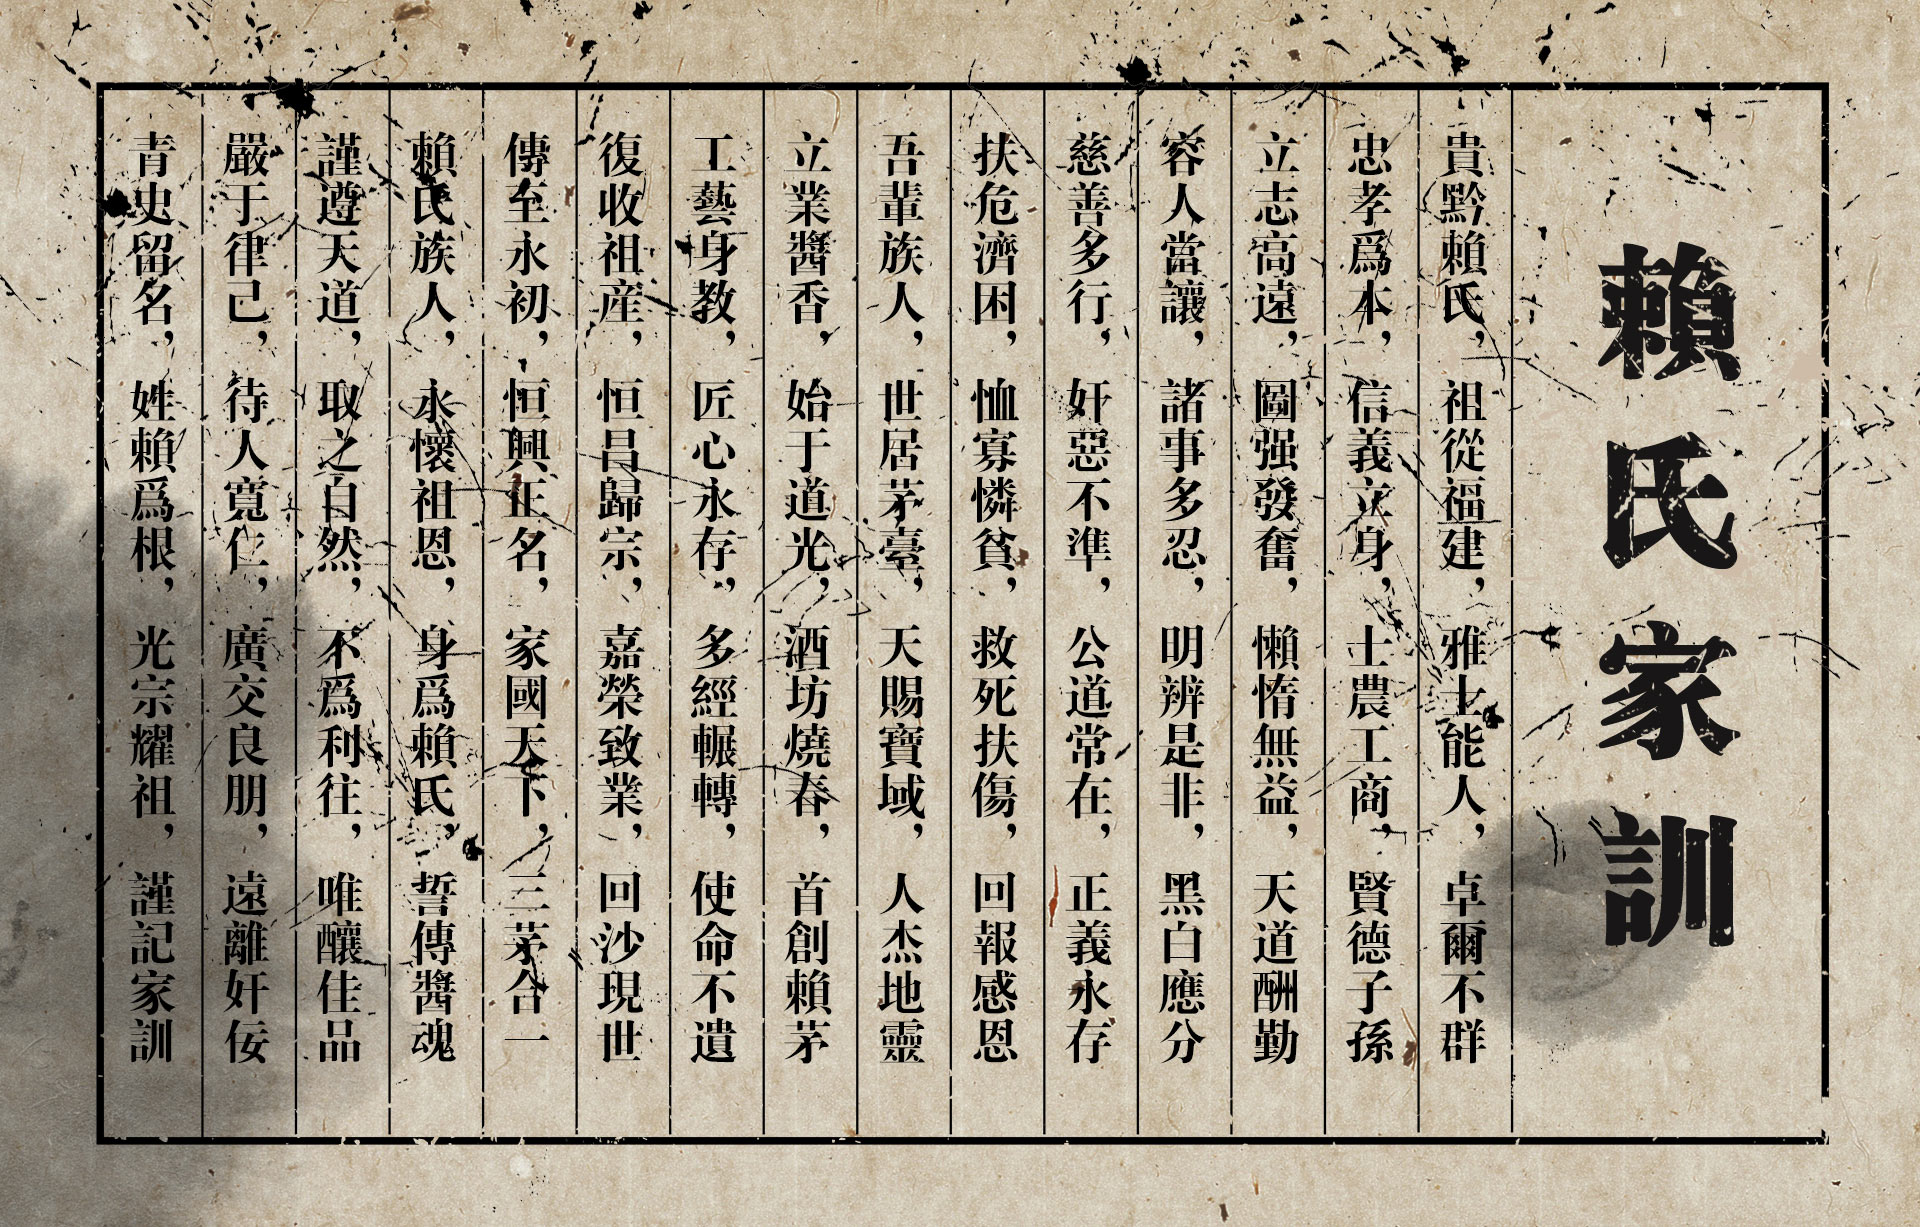 賴氏家訓
貴黔賴氏，祖從福建，雅士能人，卓爾不群
忠孝爲本，信義立身，士農工商，賢德子孫
立志高遠，圖强發奮，懶惰無益，天道酬勤
容人當讓，諸事多忍，明辨是非，黑白應分
慈善多行，奸惡不準，公道常在，正義永存
扶危濟困，恤寡憐貧，救死扶傷，回報感恩
吾輩族人，世居茅臺，天賜寶域，人杰地靈
立業醬香，始于道光，酒坊燒春，首創賴茅
工藝身教，匠心永存，多經輾轉，使命不遺
復收祖産，恒昌歸宗，嘉榮致業，回沙現世
傳至永初，恒興正名，家國天下，三茅合一
賴氏族人，永懷祖恩，身爲賴氏，誓傳醬魂
謹遵天道，取之自然，不爲利往，唯釀佳品
嚴于律己，待人寬仁，廣交良朋，遠離奸佞
青史留名，姓賴爲根，光宗耀祖，謹記家訓